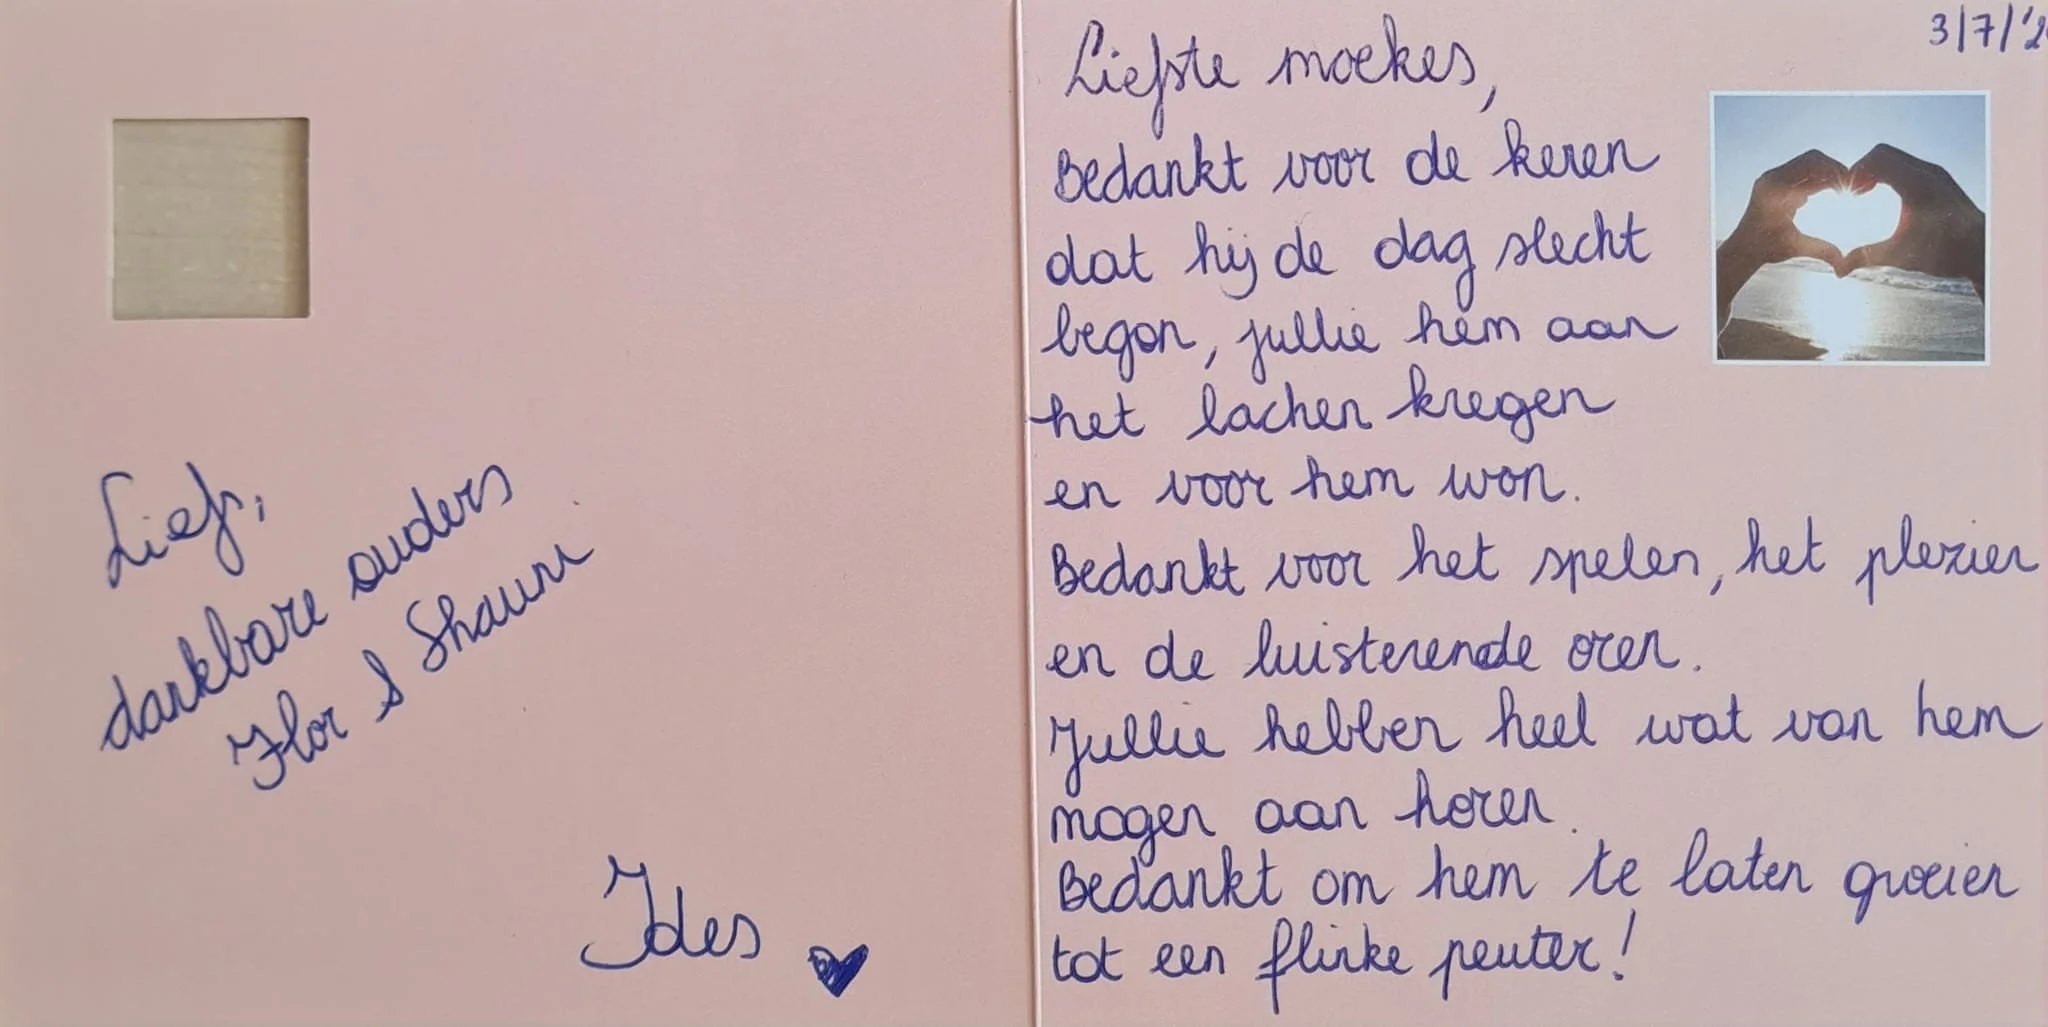 Liefs,
dankbare ouders
Flor & Shauni
Ides
3/7/'2
Liefste moekes,
Bedankt voor de keren
dat hij de dag slecht
begon, jullie hem aan
het lachen kregen
en voor hem won.
Bedankt voor het spelen, het plezier
en de luisterende oren.
Jullie hebben heel wat van hem
mogen aan horen.
Bedankt om hem te laten groeien
tot een flinke peuter!